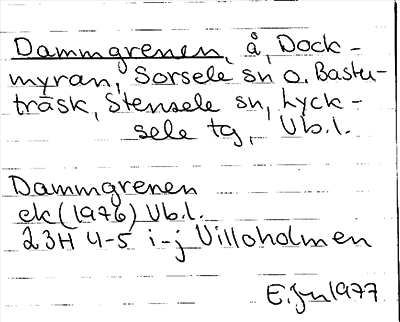 Dammgrenen, å, Dock-
myran, Sorsele sn o. Bastu-
träsk, Stensele sn, Lyck-
sele tg, Vb.l.
Dammgrenen
ek (1976) Vb.l.
23H 4-5 i-j Villoholmen
E. Jn 1977